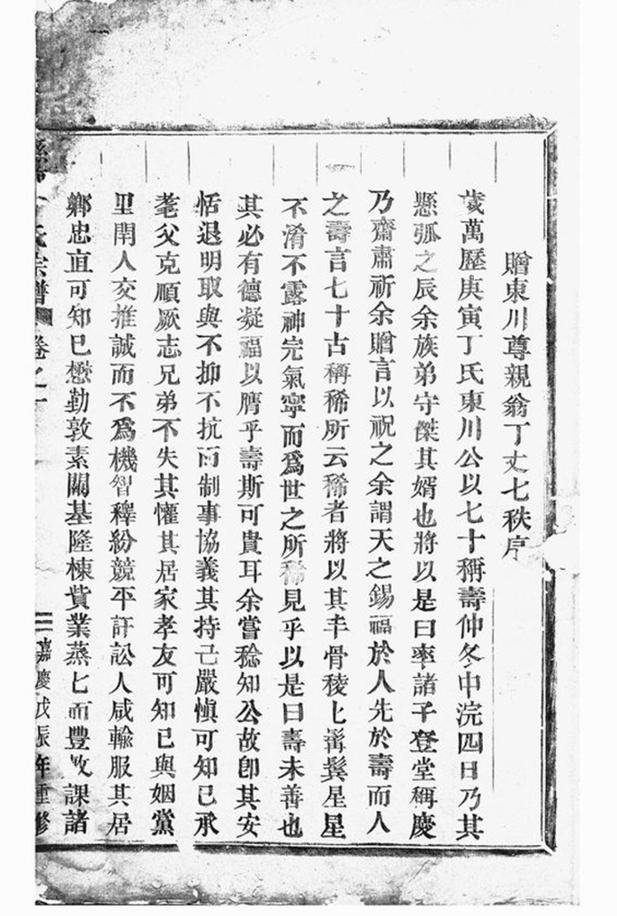 贈東川尊親翁丁丈七秩序
歲萬歷庚寅丁氏東川公以七十稱壽仲冬中浣四日乃其
懸弧之辰余族弟守傑其婿也將以是日率諸子登堂稱慶
乃齋肅祈余贈言以祝之余謂天之錫福於人先於壽而人
之壽言七十古稱稀所云稀者將以其丰骨稜匕髯鬂星星
不淆不露神完氣寧而爲世之所稀見乎以是曰壽未善也
其必有德凝福以膺乎壽斯可貴耳余嘗稔知公故卽其安
恬退明取與不抑不抗而制事協義其持己嚴愼可知已承
耄父克順厥志兄弟不失其懽其居家孝友可知已與姻黨
里閈人交推誠而不爲機智稗紛競平訐訟人咸輸服其居
鄉忠直可知已懋勤敦素闢基隆棟貲業蒸匕而豐牧課諸
氏宗譜 卷之一 嘉慶戊辰年重修